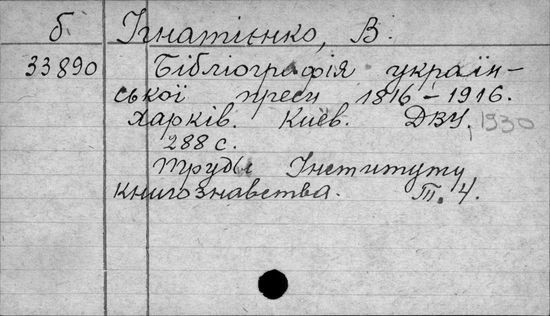 б Ігнатієнко, В.
33890 Бібліографія україн-
ської преси 1816-1916.
Харків. Київ. ДВУ, 1930
288 с.
Труды Інституту
книгознавства. Т. 4.